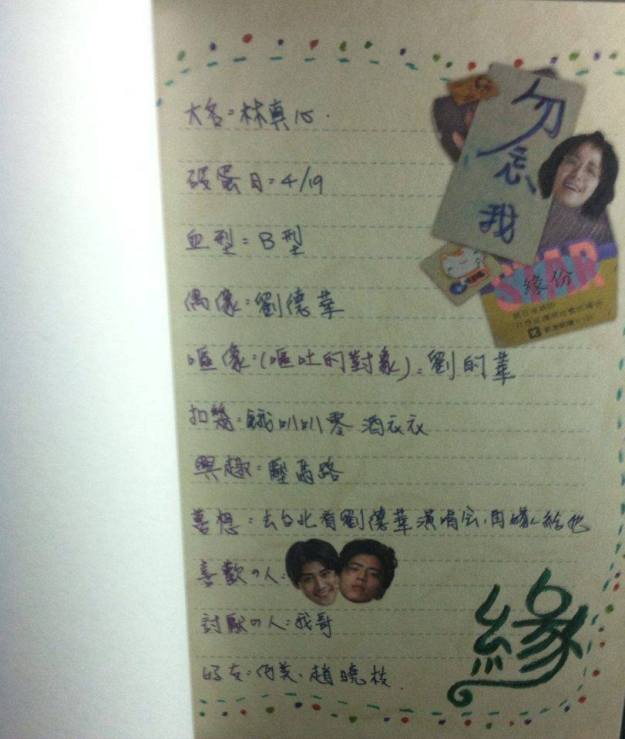 大名:林真心.
破蛋日:4/19
血型:B型
偶像:劉德華
嘔像:(嘔吐的對象):劉的華
扣機:餓叭叭零 酒衣衣
興趣:壓馬路
夢想:去台北看劉德華演唱会,再嫁給他
喜歡の人:
討厭の人:我哥
好友:何美、趙曉枝.
勿忘我
STAR
緣份
緣